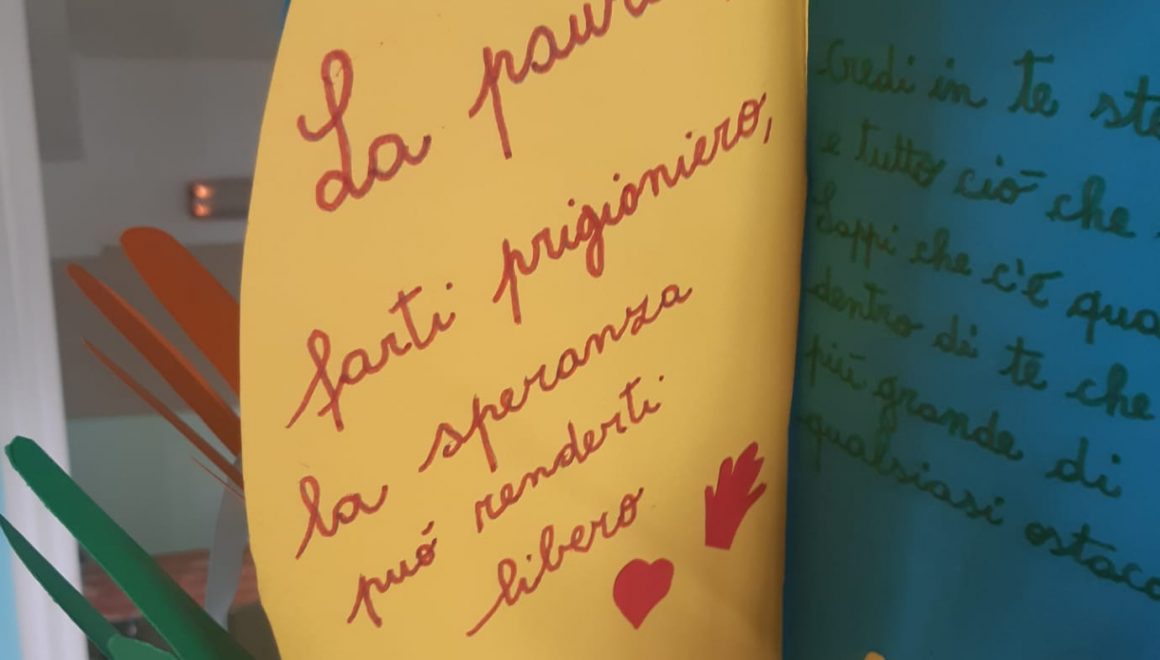 La paur
farti prigioniero,
la speranza
puó renderti
libero
Credi in te ste
e tutto ciò che
Sappi che c'è qua
dentro di te che
più grande di
qualsiasi ostaco